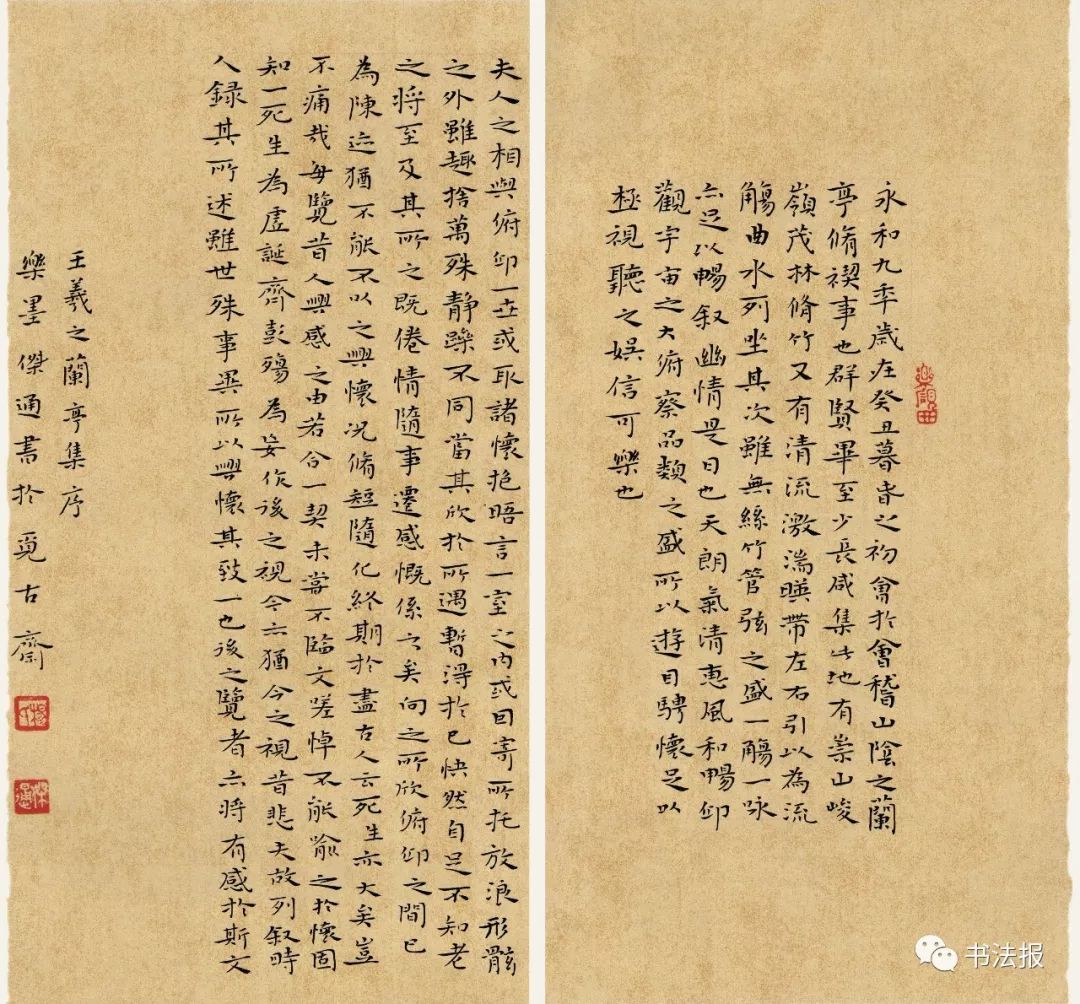 永和九年歲在癸丑暮春之初會於會稽山陰之蘭
亭脩禊事也群賢畢至少長咸集此地有崇山峻
嶺茂林脩竹又有清流激湍暎帶左右引以為流
觴曲水列坐其次雖無絲竹管弦之盛一觴一咏
亦足以暢叙幽情是日也天朗氣清惠風和暢仰
觀宇宙之大俯察品類之盛所以遊目騁懷足以
極視聽之娛信可樂也
夫人之相與俯仰一世或取諸懷抱晤言一室之內或因寄所托放浪形骸
之外雖趣捨萬殊静躁不同當其欣於所遇暫得於己快然自足不知老
之將至及其所之既倦情隨事遷感慨係之矣向之所欣俯仰之間已
為陳迹猶不能不以之興懷况脩短隨化終期於盡古人云死生亦大矣豈
不痛哉每覽昔人興感之由若合一契未嘗不臨文嗟悼不能喻之於懷固
知一死生為虛誕齊彭殤為妄作後之視今亦猶今之視昔悲夫故列叙時
人録其所述雖世殊事異所以興懷其致一也後之覽者亦將有感於斯文
王羲之蘭亭集序
樂墨傑通書於覓古齋
书法报